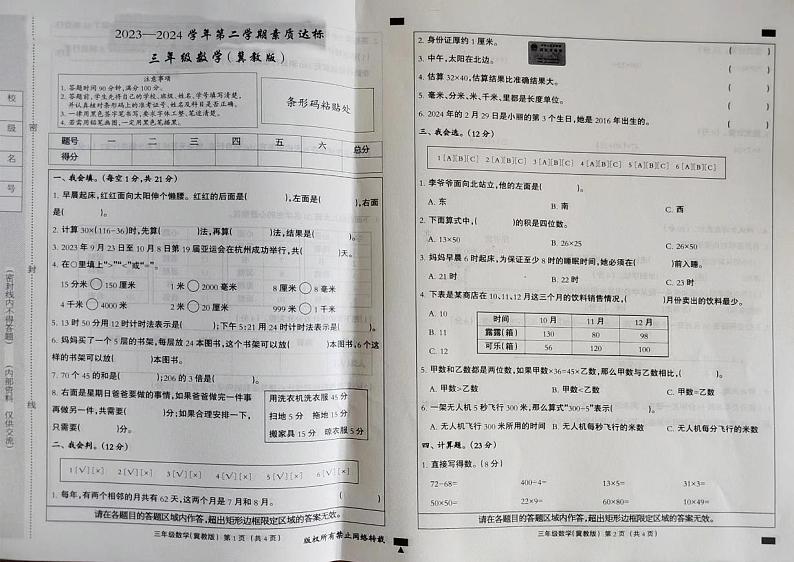 校
级
名
号
密
封
线
(密封线内不得答题)
(内部资料 仅供交流)
2023—2024 学年第二学期素质达标
三年级数学(冀教版)
注意事项
1. 答题时间 90 分钟,满分 100 分。
2. 答题前,学生先将自己的学校、班级、姓名、学号填写清楚,
并认真核对条形码上的准考证号、姓名及科目是否正确。
3. 一律用黑色签字笔书写,要求字体工整、笔迹清楚。
4. 若需用铅笔画图,一定用黑色笔描黑。
条形码粘贴处
题号 一 二 三 四 五 六 总分
得分
一、我会填。(每空 1 分,共 21 分)
1. 早晨起床,红红面向太阳伸个懒腰。红红的后面是( ),左面是( ),右面
是( )。
2. 计算 30×(116-36)时,先算( )法,再算( )法,结果是( )。
3. 2023 年 9 月 23 日至 10 月 8 日第 19 届亚运会在杭州成功举行,共( )天。
4. 在○里填上“>”“<”或“=”。
15 分米○150 厘米 1 米○2000 毫米 8 厘米○8 毫米
4 千米○4000 米 2 米○20 厘米 999 米○1 千米
5. 13 时 50 分用 12 时计时法表示是( );下午 5:21 用 24 时计时法表示是( )。
6. 妈妈买了一个 5 层的书架,每层放 24 本图书,这个书架可以放( )本图书,6 个这
样的书架可以放( )本图书。
7. 70 个 45 的和是( );206 的 3 倍是( )。
8. 右面是星期日爸爸要做的事情,如果爸爸做完一件事
再做另一件,共需要( )分;如果合理安排一下,
只需要( )分。
用洗衣机洗衣服 45 分
扫地 5 分 拖地 15 分
搬家具 15 分 晾衣服 5 分
二、我会判。(12 分)
1 [√] [×] 2 [√] [×] 3 [√] [×] 4 [√] [×] 5 [√] [×] 6 [√] [×]
1. 每年,有两个相邻的月共有 62 天,这两个月是 7 月和 8 月。 ( )
请在各题目的答题区域内作答,超出矩形边框限定区域的答案无效。
三年级数学(冀教版) 第 1 页 (共 4 页)
版权所有禁止网络转载
2. 身份证厚约 1 厘米。 ( )
3. 中午,太阳在北边。 ( )
4. 估算 32×40,估算结果比准确结果大。 ( )
5. 毫米、分米、米、千米、里都是长度单位。 ( )
6. 2024 年的 2 月 29 日是小丽的第 3 个生日,她是 2016 年出生的。 ( )
三、我会选。(12 分)
1 [A] [B] [C] 2 [A] [B] [C] 3 [A] [B] [C] 4 [A] [B] [C] 5 [A] [B] [C] 6 [A] [B] [C]
1. 李爷爷面向北站立,他的左面是( )。
A. 东 B. 南 C. 西
2. 下面算式中,( )的积是四位数。
A. 13×50 B. 26×25 C. 26×50
3. 妈妈早晨 6 时起床,为保证至少 8 时的睡眠时间,她必须在( )前入睡。
A. 21 时 B. 22 时 C. 23 时
4. 下表是某商店在 10、11、12 月这三个月的饮料销售情况,( )月份卖出的饮料最少。
A. 10
B. 11
C. 12
时间 10 月 11 月 12 月
露露(箱) 130 80 98
可乐(箱) 56 120 100
5. 甲数和乙数都是两位数,如果甲数×36=45×乙数,那么甲数与乙数相比,( )。
A. 甲数>乙数 B. 甲数<乙数 C. 甲数=乙数
6. 一架无人机 5 秒飞行 300 米,那么算式“300÷5”表示( )。
A. 无人机飞行 300 米所用的时间 B. 无人机每秒飞行的米数 C. 无人机每分飞行的米数
四、计算题。(23 分)
1. 直接写得数。(8 分)
72-68= 400÷4= 13×5= 31×3=
50×50= 22×9= 60×80= 10×49=
请在各题目的答题区域内作答,超出矩形边框限定区域的答案无效。
三年级数学(冀教版) 第 2 页 (共 4 页)